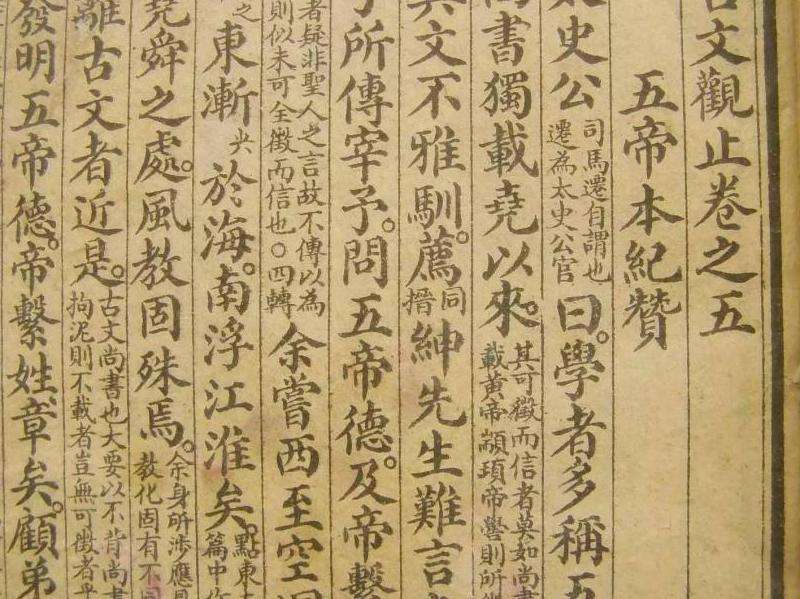 古文觀止卷之五
五帝本紀贊
太史公司馬遷自謂也遷為太史公官曰。學者多稱五
尚書獨載堯以來。其可徵而信者莫如尚書載黃帝顓頊帝嚳則所
其文不雅馴。薦同搢紳先生難言
予所傳宰予。問五帝德。及帝繫
者疑非聖人之言故不傳以為則似未可全徵而信也○四轉余嘗西至空
之東漸尖於海。南浮江淮矣。點東篇中
堯舜之處。風教固殊焉。余身所涉應教化固有不
離古文者近是。古文尚書也大要以不背尚書拘泥則不載者豈無可徵者
發明五帝德。帝繫姓章矣。顧弟